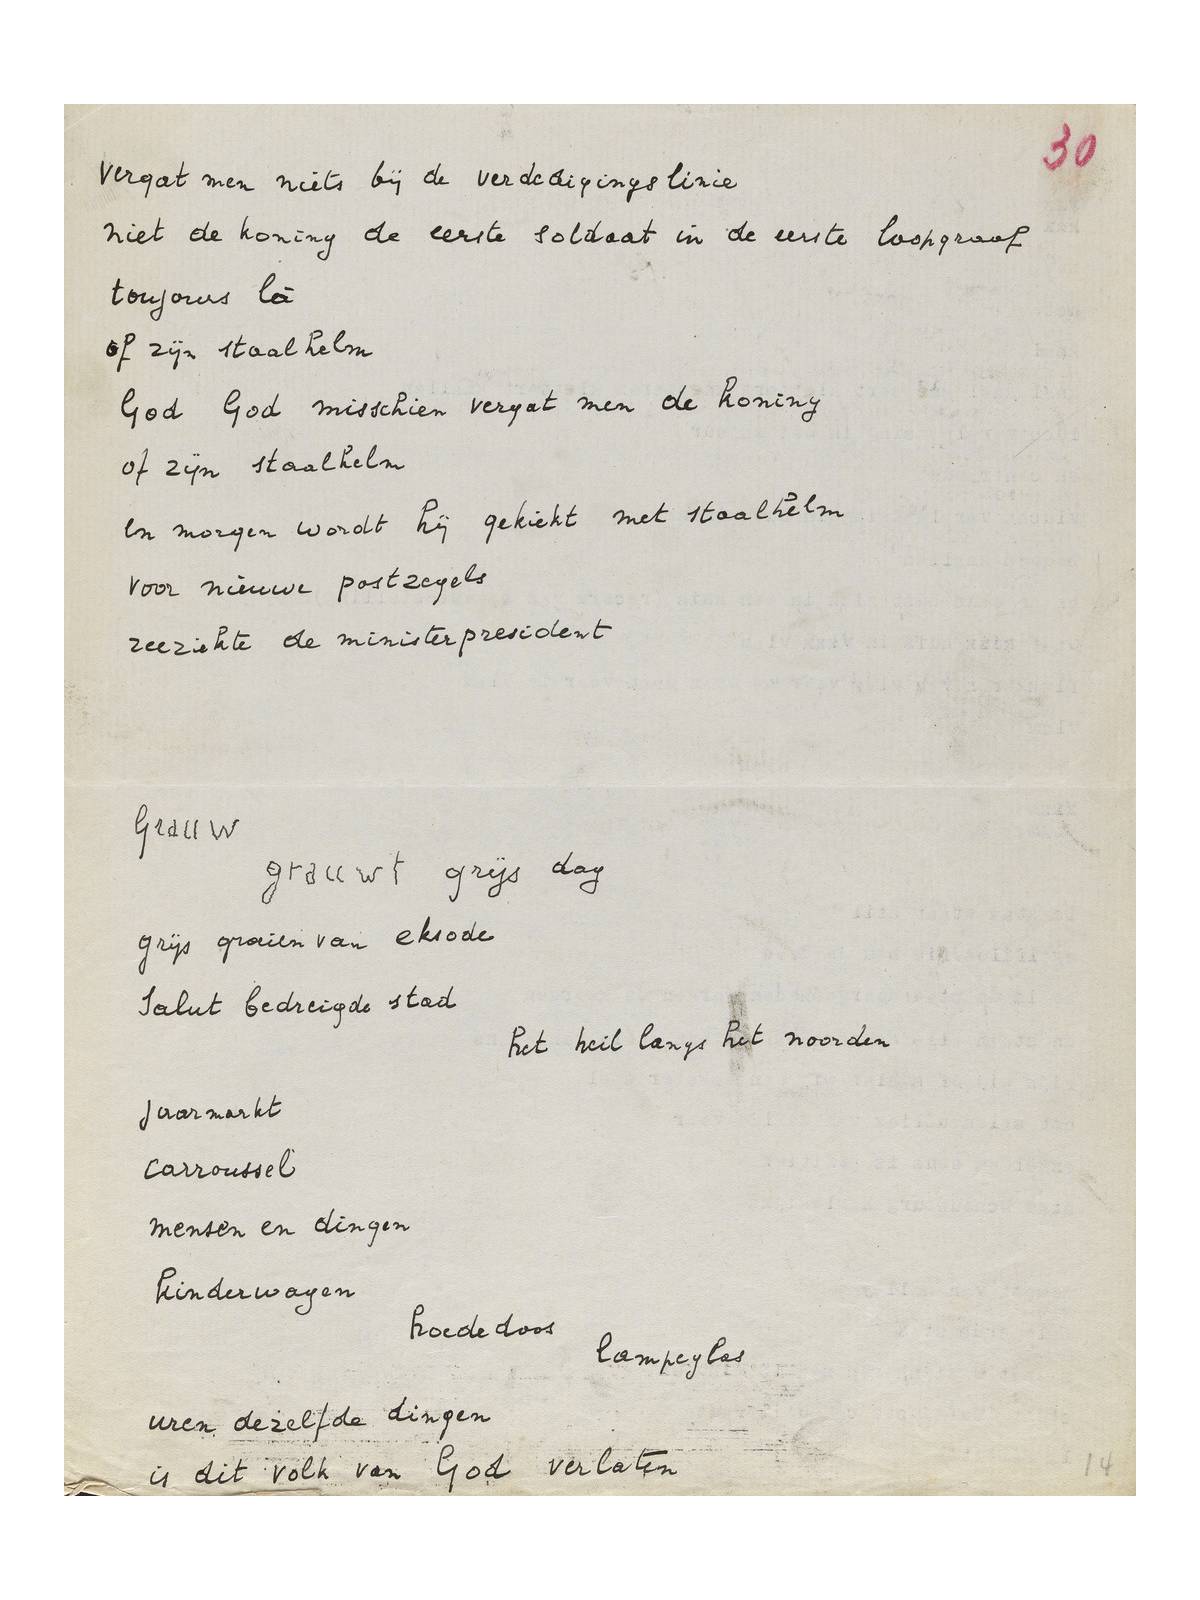 30
vergat men niets bij de verdedigingslinie
niet de koning de eerste soldaat in de eerste loopgraaf
toujours là
of zijn staalhelm
God God misschien vergat men de koning
of zijn staalhelm
en morgen wordt hij gekiekt met staalhelm
voor nieuwe postzegels
zeeziekte de ministerpresident
Grauw
grauwt grijs dag
grijs graien van eksode
Salut bedreigde stad
het heil langs het noorden
jaarmarkt
carroussel
mensen en dingen
kinderwagen
hoededoos
lampeglas
uren dezelfde dingen
is dit volk van God verlaten
14